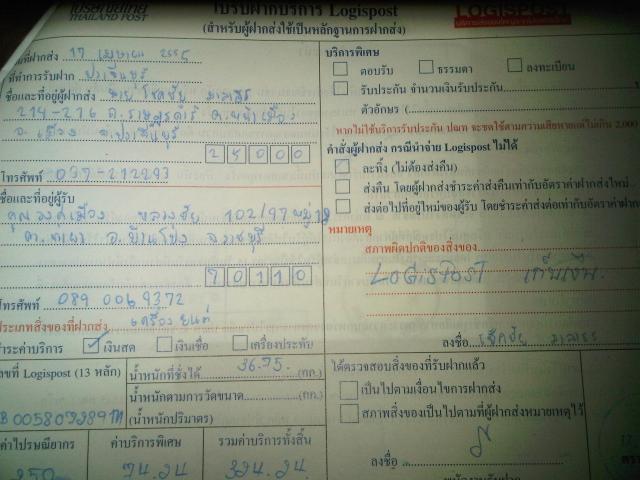 ไปรษณีย์ไทย
THAILAND POST
ใบรับฝากบริการ Logispost
LOGISPOST
(สำหรับผู้ฝากส่งใช้เป็นหลักฐานการฝากส่ง)
วันที่ฝากส่ง 17 เมษายน
ที่ทำการรับฝาก ปราจีนบุรี
ชื่อและที่อยู่ผู้ฝากส่ง นาย โชคชัย
214-216 ถ.ราษฎรดำริ ต.หน้าเมือง
อ.เมือง จ.ปราจีนบุรี
25000
โทรศัพท์ 037-212293
ชื่อและที่อยู่ผู้รับ
คุณ 102/97 หมู่ 18
อ.บ้านโป่ง จ.ราชบุรี
70110
โทรศัพท์ 089 0069372
ประเภทสิ่งของที่ฝากส่ง เครื่องยนต์
ชำระค่าบริการ เงินสด เงินเชื่อ เครื่องประทับ
เลขที่ Logispost (13 หลัก)
น้ำหนักที่ชั่งได้ 36.75 (กก.)
น้ำหนักตามการวัดขนาด (กก.)
(น้ำหนักปริมาตร)
ค่าไปรษณียากร ค่าบริการพิเศษ รวมค่าบริการทั้งสิ้น
250 74.24 324.24
บริการพิเศษ
ตอบรับ ธรรมดา ลงทะเบียน
รับประกัน จำนวนเงินรับประกัน
ตัวอักษร (
หากไม่ใช้บริการรับประกัน ปณท จะชดใช้ตามความเสียหายแต่ไม่เกิน 2,000
คำสั่งผู้ฝากส่ง กรณีนำจ่าย Logispost ไม่ได้
ละทิ้ง (ไม่ต้องส่งคืน)
ส่งคืน โดยผู้ฝากส่งชำระค่าส่งคืนเท่ากับอัตราค่าฝากส่งใหม่
ส่งต่อไปที่อยู่ใหม่ของผู้รับ โดยชำระค่าส่งต่อเท่ากับอัตราค่าฝาก
หมายเหตุ
สภาพผิดปกติของสิ่งของ
LOGISPOST เก็บเงิน
ลงชื่อ โชคชัย
ได้ตรวจสอบสิ่งของที่รับฝากแล้ว
เป็นไปตามเงื่อนไขการฝากส่ง
สภาพสิ่งของเป็นไปตามที่ผู้ฝากส่งหมายเหตุไว้
ลงชื่อ
พนักงานรับฝาก